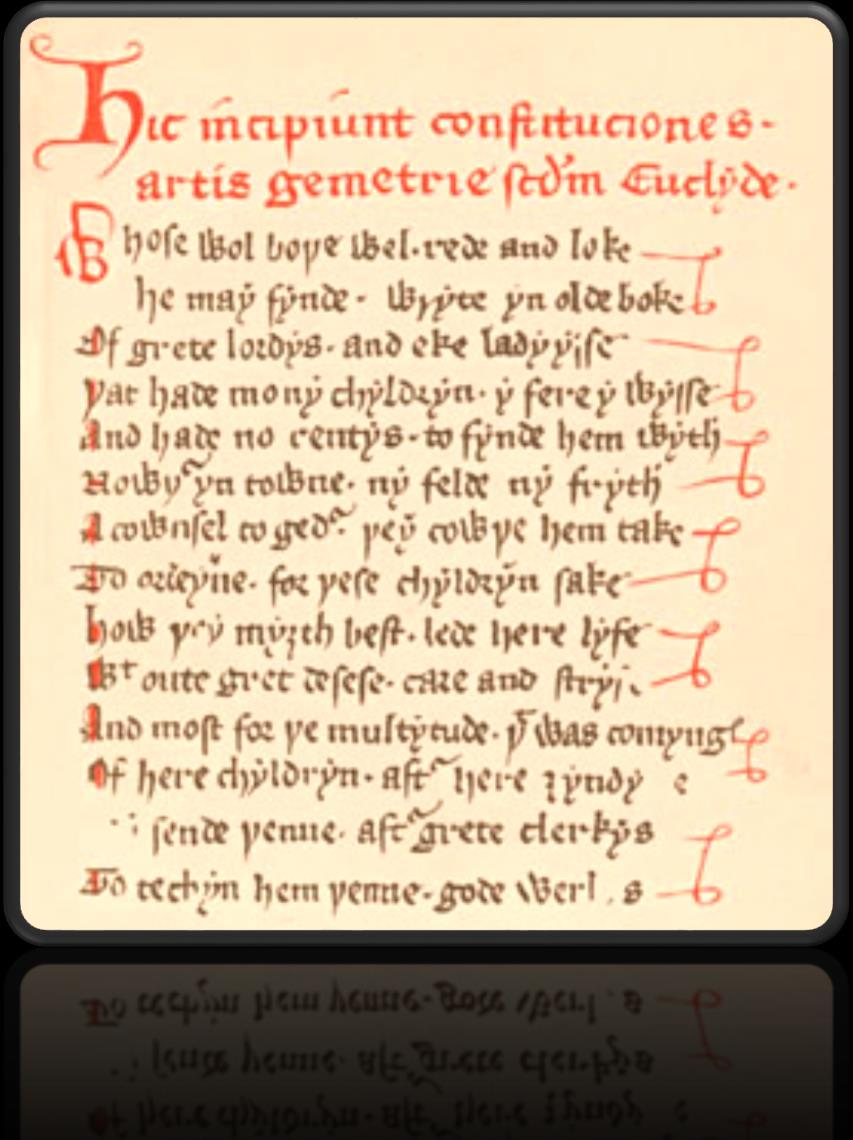 Hic incipiunt constituciones·
artis gemetrie scd̄m Euclyde·
Whose wol boþe wel·rede and loke
he may fynde· wryte yn olde boke
Of grete lordys· and eke ladyysse
þat hade mony chyldryn· y fere y wysse
And hade no rentys· to fynde hem wyth
Nowþ͛ yn towne· ny felde ny fryth
A cownsel to ged͛· þey cowþe hem take
To ordeyne· for þese chyldryn sake
how þey myȝth best· lede here lyfe
Wᵗ oute gret desese· care and
And most for þe multytude· þᵗ was comynge
Of here chyldryn· aft͛ here
sende þenne· aft͛ grete clerkys
To techyn hem þenne· gode